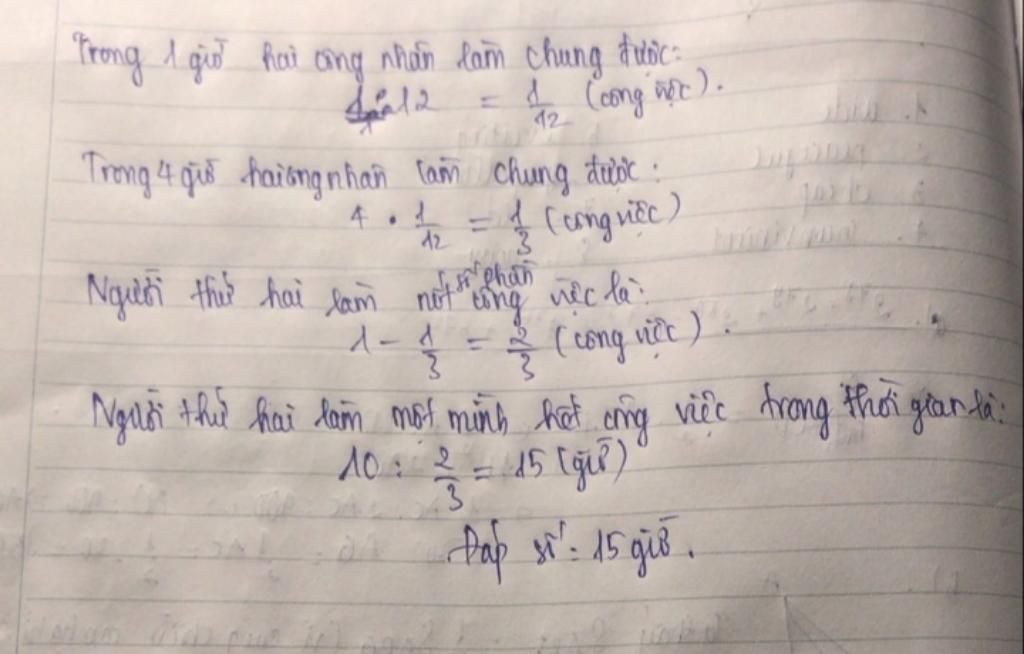 Trong 1 giờ hai công nhân làm chung được:
1 : 12 = 1/12 (công việc).
Trong 4 giờ hai công nhân làm chung được:
4 . 1/12 = 1/3 (công việc)
Người thứ hai làm nốt số phần công việc là:
1 - 1/3 = 2/3 (công việc).
Người thứ hai làm một mình hết công việc trong thời gian là:
10 : 2/3 = 15 (giờ)
Đáp số: 15 giờ.